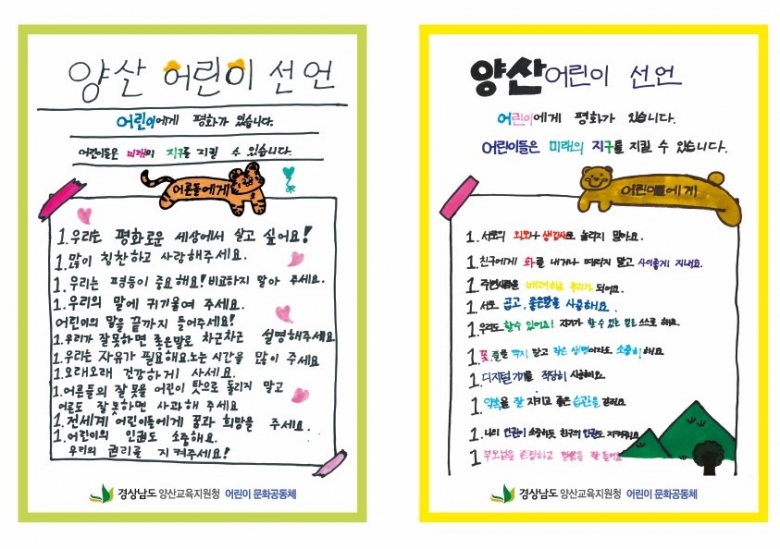 양산 어린이 선언
어린이에게 평화가 있습니다.
어린이들은 미래의 지구를 지킬 수 있습니다.
어른들에게
1. 우리는 평화로운 세상에서 살고 싶어요!
1. 많이 칭찬하고 사랑해주세요.
1. 우리는 평등이 중요해요! 비교하지 말아 주세요.
1. 우리의 말에 귀기울여 주세요.
어린이의 말을 끝까지 들어주세요!
1. 우리가 잘못하면 좋은말로 차근차근 설명해주세요
1. 우리는 자유가 필요해요.노는 시간을 많이 주세요
1. 오래오래 건강하게 사세요.
1. 어른들의 잘못을 어린이 탓으로 돌리지 말고
어른도 잘못하면 사과해 주세요
1. 전세계 어린이들에게 꿈과 희망을 주세요.
1. 어린이의 인권도 소중해요.
우리의 권리를 지켜주세요!
경상남도 양산교육지원청 어린이 문화공동체
양산어린이 선언
어린이에게 평화가 있습니다.
어린이들은 미래의 지구를 지킬 수 있습니다.
어린이들에게
1. 서로의 외모나 생김새로 놀리지 말아요.
1. 친구에게 화를 내거나 때리지 말고 사이좋게 지내요.
1. 주변사람을 배려하는 우리가 되어요.
1. 서로 곱고, 좋은말을 사용해요.
1. 우리도 할수 있어요! 자기가 할 수 있는 일은 스스로 해요.
1. 꽃, 풀을 꺾지 말고 작은 생명이라도 소중히해요.
1. 디지털 기기를 적당히 사용해요.
1. 약속을 잘 지키고 좋은 습관을 길러요
1. 나의 인권이 소중하듯 친구의 인권도 지켜줘요
1. 부모님을 존경하고 말씀을 잘 들어요
경상남도 양산교육지원청 어린이 문화공동체